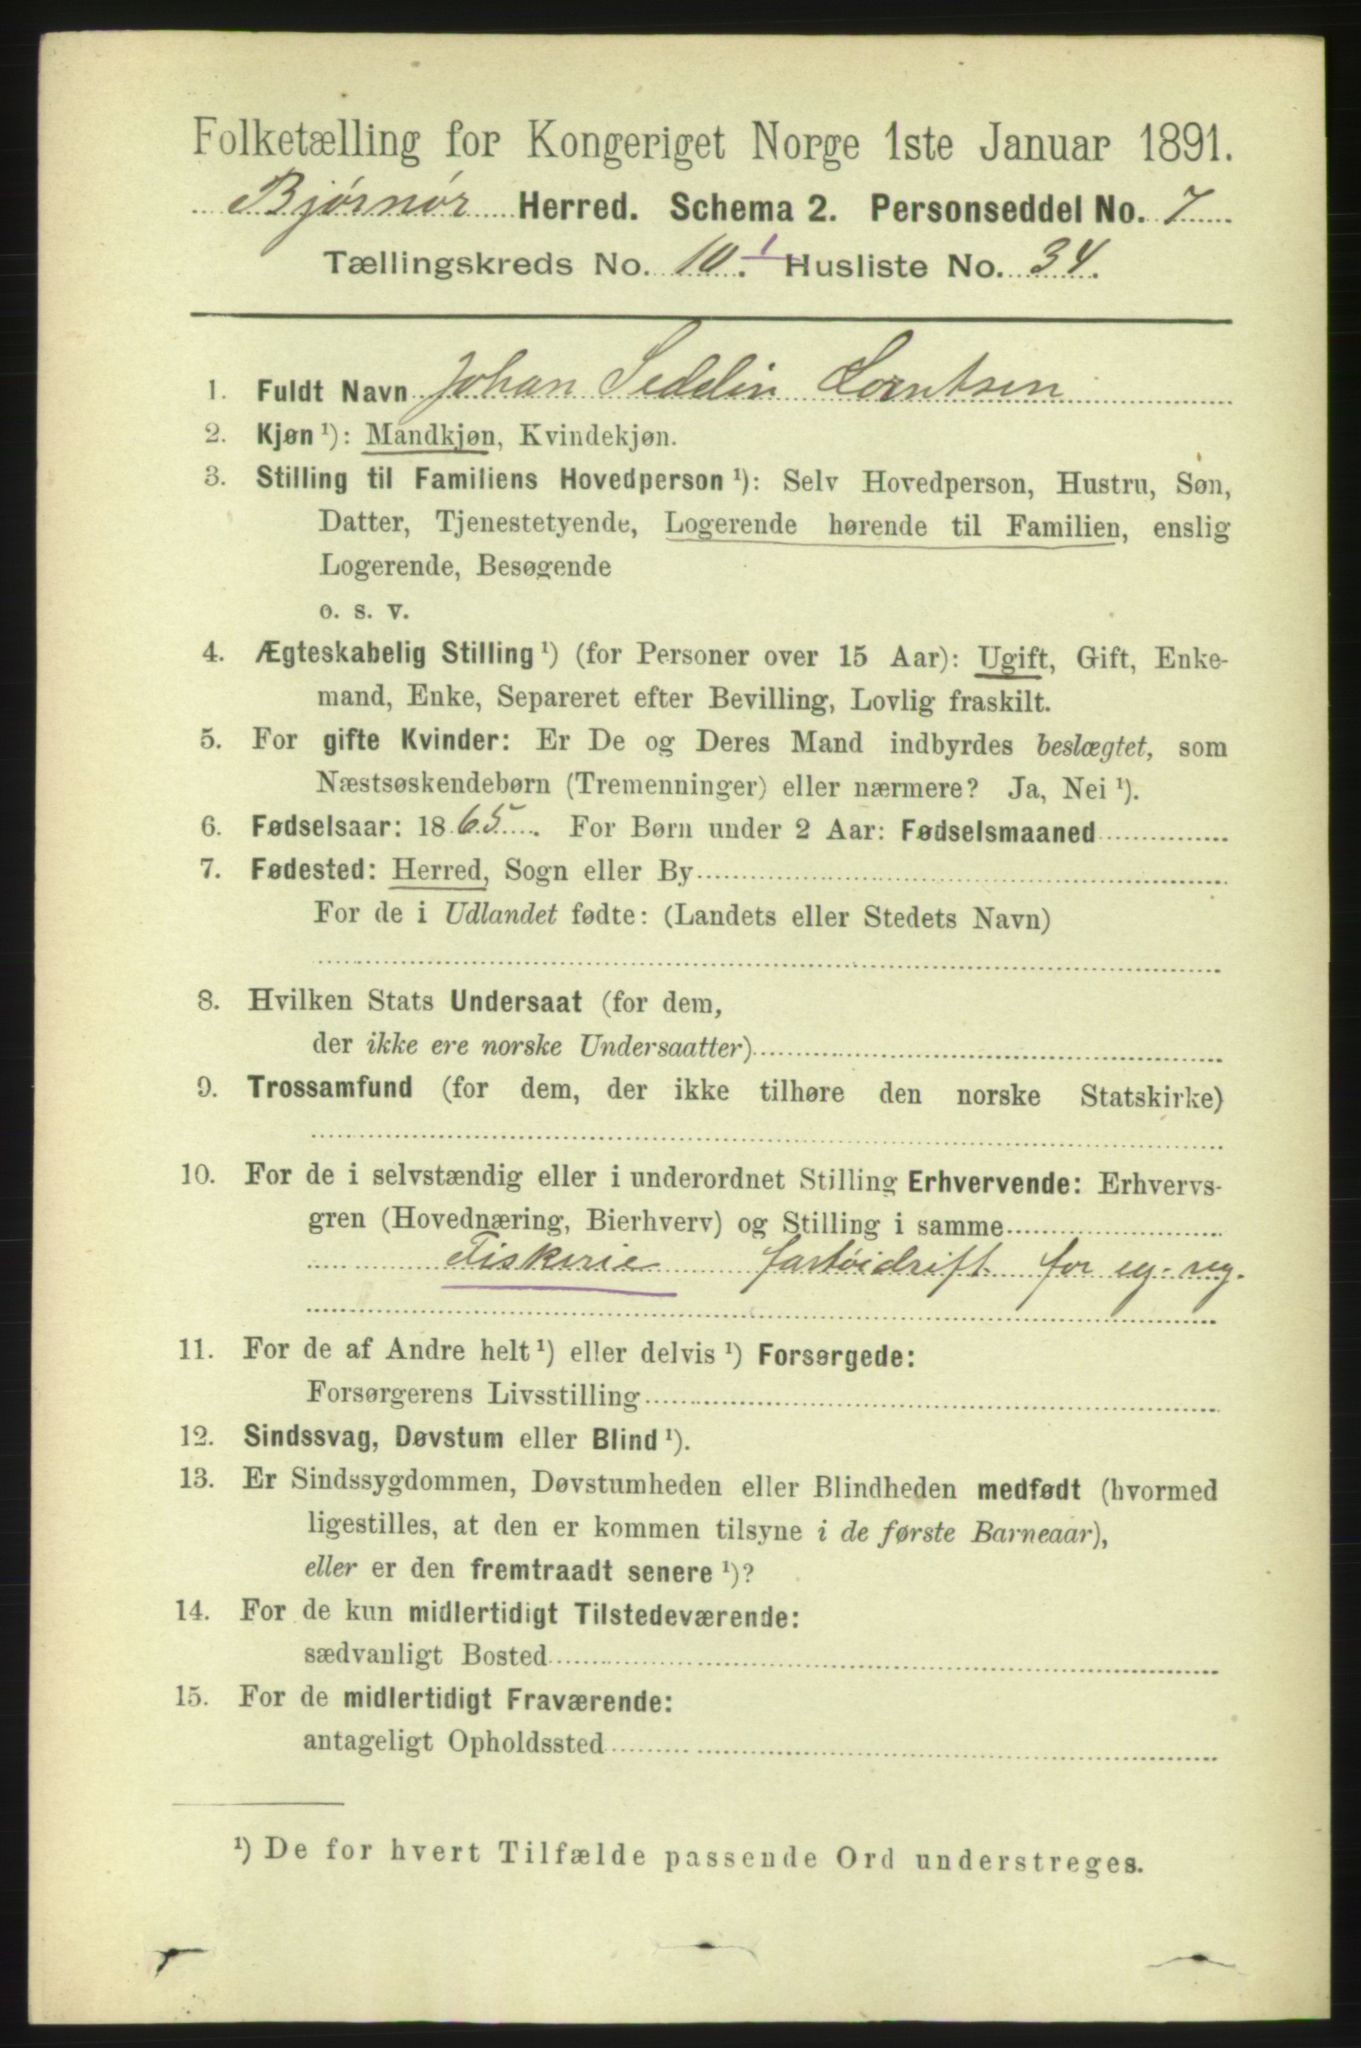 Folketælling for Kongeriget Norge 1ste Januar 1891.
Bjørnør Herred. Schema 2. Personseddel No. 7
Tællingskreds No. 10. 1 Husliste No. 34.
1. Fuldt Navn Johan Seddin Lorntsen
2. Kjøn ¹): Mandkjøn, Kvindekjøn.
3. Stilling til Familiens Hovedperson ¹): Selv Hovedperson, Hustru, Søn,
Datter, Tjenestetyende, Logerende hørende til Familien, enslig
Logerende, Besøgende
o. s. v.
4. Ægteskabelig Stilling ¹) (for Personer over 15 Aar): Ugift, Gift, Enke-
mand, Enke, Separeret efter Bevilling, Lovlig fraskilt.
5. For gifte Kvinder: Er De og Deres Mand indbyrdes beslægtet, som
Næstsøskendebørn (Tremenninger) eller nærmere? Ja, Nei ¹).
6. Fødselsaar: 1865. For Børn under 2 Aar: Fødselsmaaned
7. Fødested: Herred, Sogn eller By
For de i Udlandet fødte: (Landets eller Stedets Navn)
8. Hvilken Stats Undersaat (for dem,
der ikke ere norske Undersaatter)
9. Trossamfund (for dem, der ikke tilhøre den norske Statskirke)
10. For de i selvstændig eller i underordnet Stilling Erhvervende: Erhvervs-
gren (Hovednæring, Bierhverv) og Stilling i samme
Fiskerie fartøidrift for eg. reg.
11. For de af Andre helt ¹) eller delvis ¹) Forsørgede:
Forsørgerens Livsstilling
12. Sindssvag, Døvstum eller Blind ¹).
13. Er Sindssygdommen, Døvstumheden eller Blindheden medfødt (hvormed
ligestilles, at den er kommen tilsyne i de første Barneaar),
eller er den fremtraadt senere ¹)?
14. For de kun midlertidigt Tilstedeværende:
sædvanligt Bosted
15. For de midlertidigt Fraværende:
antageligt Opholdssted
¹) De for hvert Tilfælde passende Ord understreges.